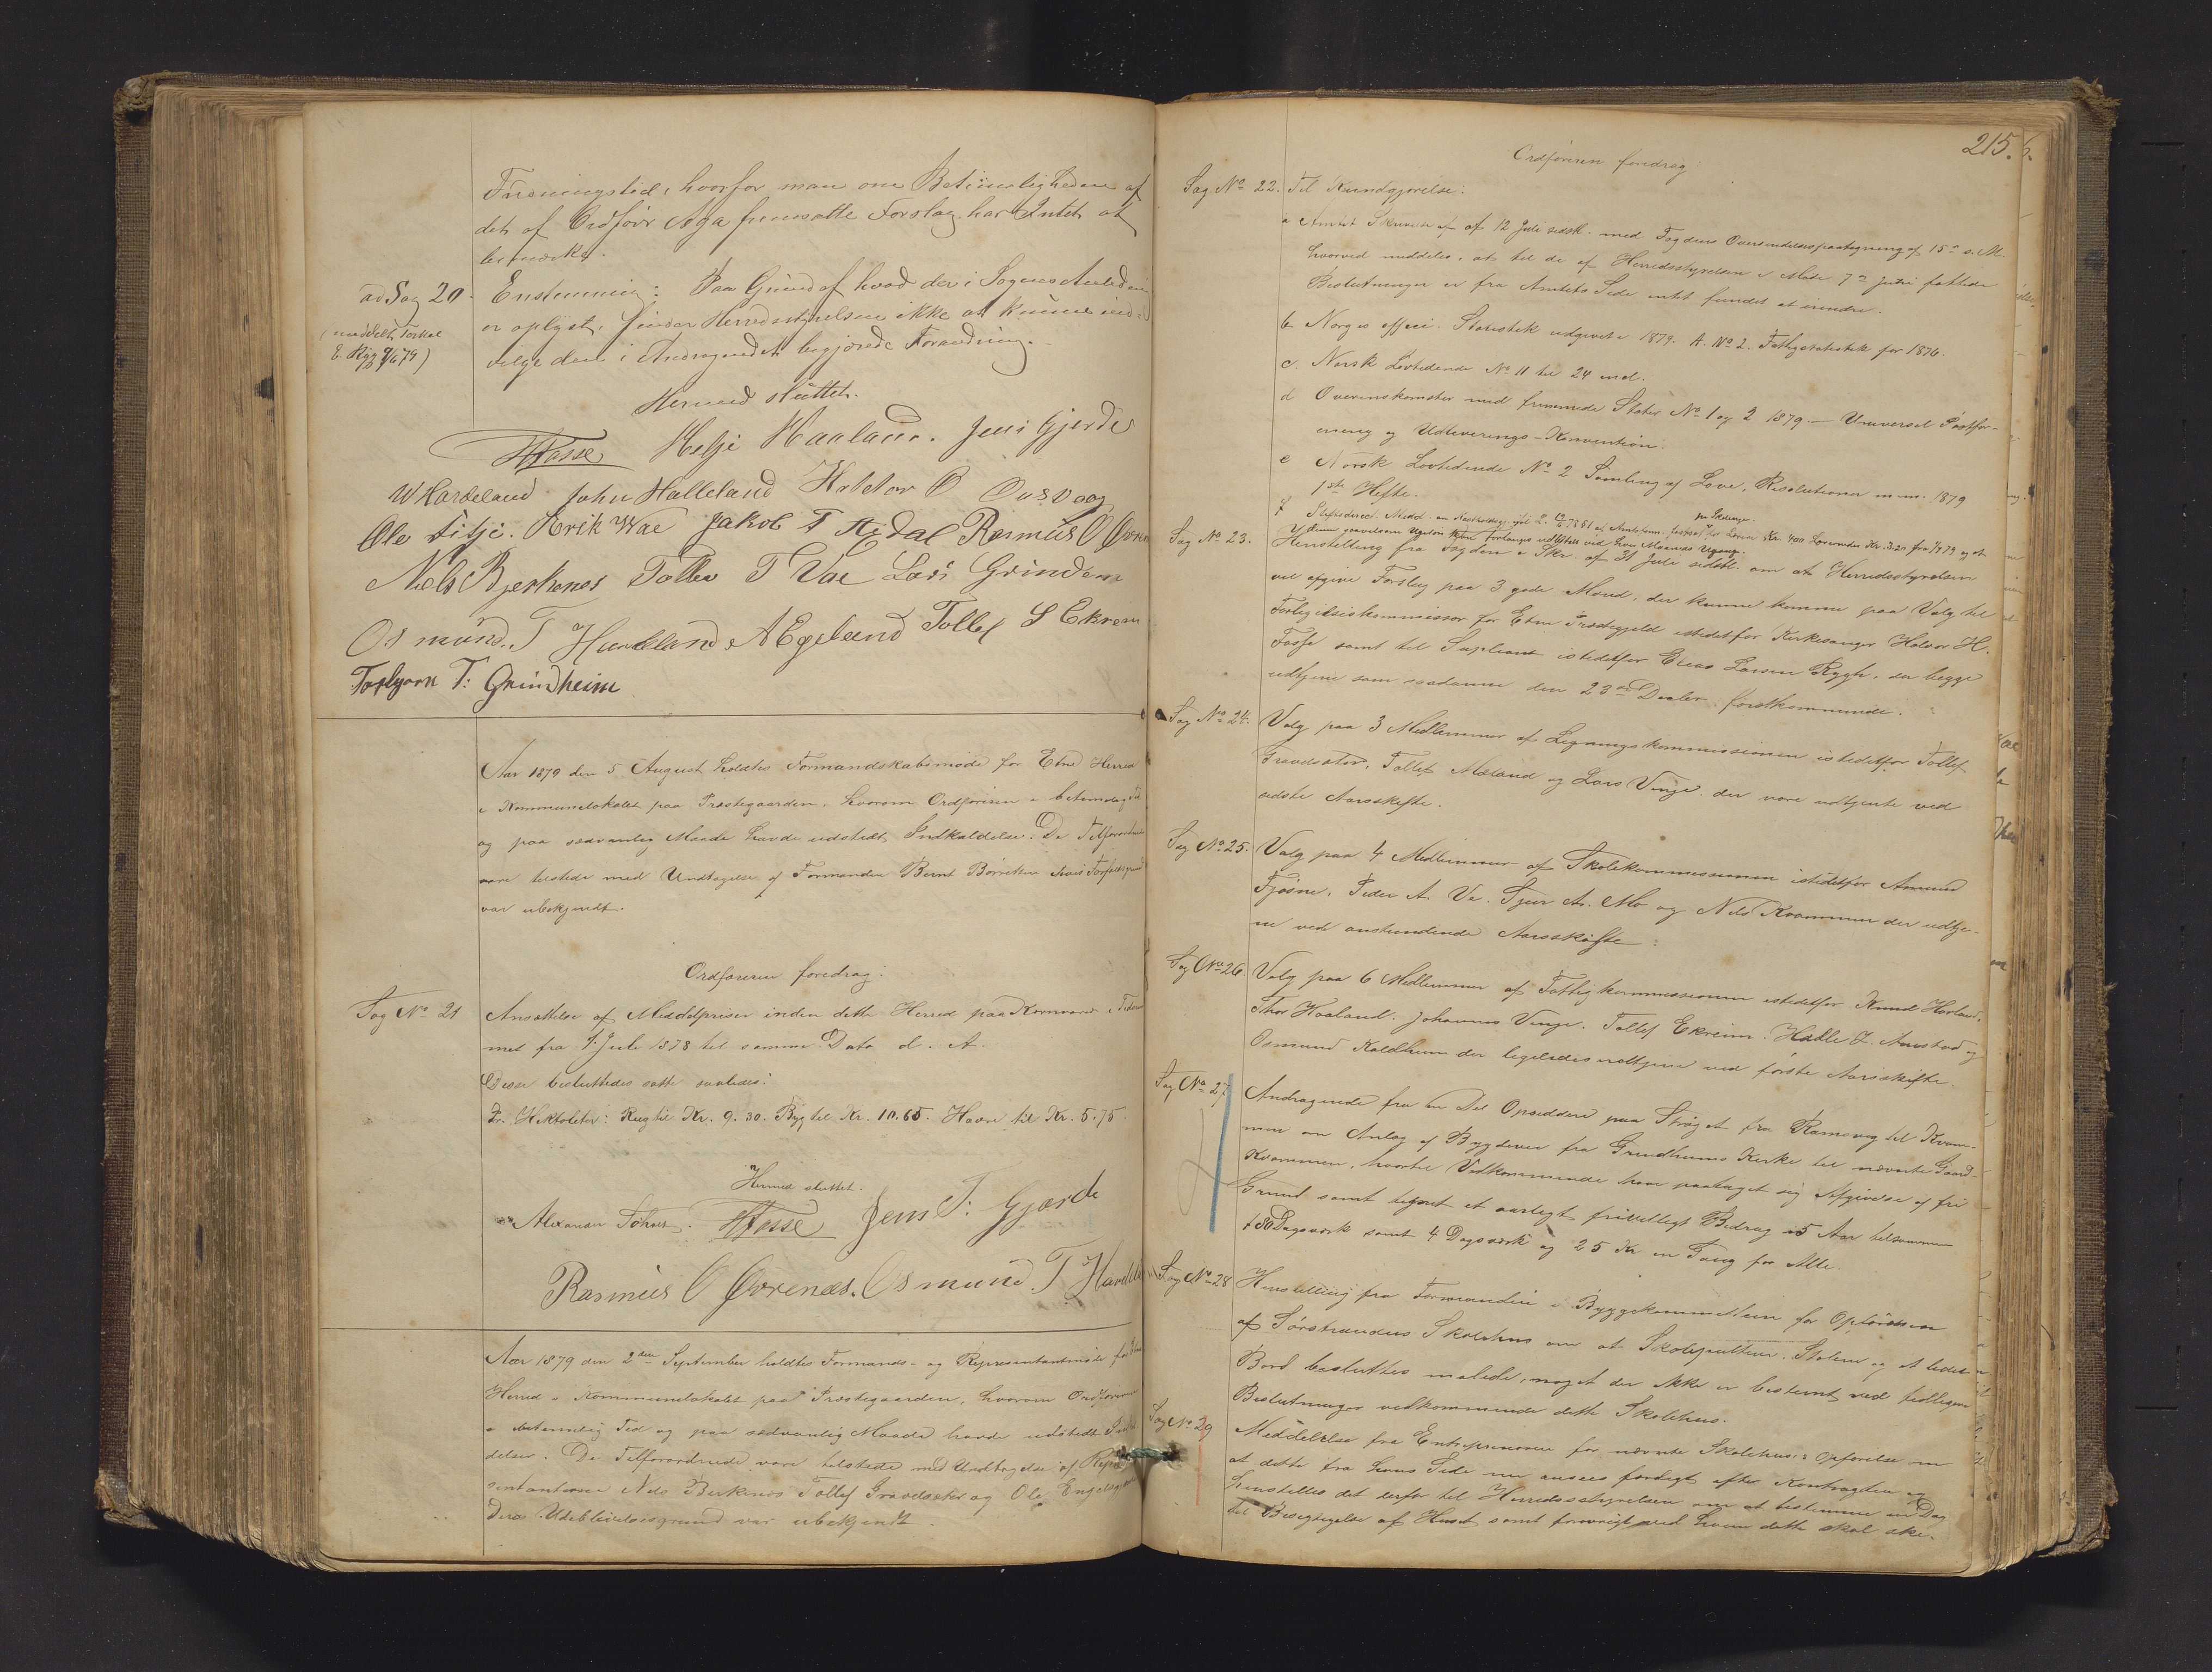 Fredningstid, hvorfor man om Betimeligheden af
det af Ordfører Aga fremsatte Forslag har Intet at
bemærke.
ad Sag 20. Enstemmig: Paa Grund af hvad der i Sagens Anledning
er oplyst, finder Herredsstyrelsen ikke at kunne ind-
vilge den i Andragendet begjærede Forandring.
(meddelt Torkel
E. Rygg 9/6 79)
Hermed sluttet.
HFasse Helje Haaland. Jens Gjerde
W Hardeland John Halleland O
Ole Fitje. Erik Wae Jakob T Rasmus O
Nels Bjerkenes Tollev T Vae Lars Grindem
Osmund. T A Egeland Tollef S Ekrem
T: Grindheim
Aar 1879 den 5 August holdtes Formandskabsmøde for Etne Herred
i Kommunelokalet paa Præstegaarden, hvorom Ordføreren i betimelig Tid
og paa sædvanlig Maade havde udstedt Indkaldelse. De Tilforordnede
vare tilstede med Undtagelse af Formanden Bernt Børretsen hvis
var ubekjendt.
Ordføreren foredrag:
Sag No 21 Ansættelse af Middelpriser inden dette Herred paa Kornvarer i Tids
met fra 1. Juli 1878 til samme Dato d. A.
Disse besluttedes satte saaledes:
Pr. Hektoliter: Rug til Kr. 9.30. Byg til Kr. 10.65. Havre til Kr. 5.75.
Hermed sluttet.
Alexander HFasse Jens T: Gjærde
Rasmus O Øvrenæs. Osmund. T.
Aar 1879 den 2den September holdtes Formands- og Repræsentantmøde for
Herred i Kommunelokalet paa Præstegaarden, hvorom Ordføreren
i betimelig Tid og paa sædvanlig Maade havde udstedt Ind
delse. De Tilforordnede vare tilstede med Undtagelse af Repræ
sentanterne Nels Berkenes Tollef Gravdsæter og Ole
Deres Udeblivelsesgrund var ubekjendt.
215.
Ordføreren foredrog:
Sag No 22. Til Kundgjørelse:
a Amtets Skrivelse af 12 Juli sidstl. med Fogdens Oversendelsespaategning af 15de s. M.
hvorved meddeles, at til de af Herredsstyrelsen i Møde 7de Juni fattede
Beslutninger er fra Amtets Side intet fundet at erindre.
b Norges officl. Statistik udgivet i 1879. A. No 2. Fattigstatistik for 1876.
c. Norsk Lovtidende No 11 til 24 incl.
d Overenskomster med fremmede Stater No 1 og 2 1879. — Universel Postfor-
ening og Udleverings-Konvention.
e Norsk Lovtidende No 2 Samling af Love, Resolutioner m.m. 1879
1ste Hefte.
Sag No 23. Henstilling fra Fogden i Skr. af 31 Juli sidstl. om at Herredsstyrelsen
vil afgive Forslag paa 3 gode Mænd, der kunne komme paa Valg til
Forligelseskommissær for Etne Præstegjeld istedetfor Kirkesanger Halvor H.
Fosse samt til Supleant istedetfor Elias Larsen Rygh, da begge
udtjene som saadanne den 23de Decbr. førstkommende.
Sag No 24. Valg paa 3 Medlemmer af Ligningskommissionen istedetfor Tollef
Gravdsæter, Tollef Mæland og Lars Vinje, der vare udtjente ved
sidste Aarsskifte.
Sag No 25. Valg paa 4 Medlemmer af Skolekommissionen istedetfor Amund
Fjøsne, Peder A. Ve, Sjur A. Mo og Nels Kvammen der udtje-
ne ved anstundende Aarsskifte.
Sag No 26. Valg paa 6 Medlemmer af Fattigkommissionen istedetfor Knud Hovland,
Thor Haaland, Johannes Vinje, Tollef Ekreim, Halle J. Aarstad og
Osmund Kaldheim der ligeledes udtjene ved første Aarsskifte.
Sag No 27 Andragende fra en Del Opsiddere paa Strøget fra Ramsvig til Kvam-
men om Anlæg af Bygdevei fra Grindheims Kirke til nævnte Gaard
Kvammen, hvortil Vedkommende have paataget sig Afgivelse af fri
Grund samt tegnet et aarligt frivilligt Bidrag i 5 Aar tilsammen
150 Dagsværk samt 4 Dagsværk og 25 Kr en Gang for Alle.
Sag No 28 Henstilling fra Formanden i Byggekommitteen for Opførelsen
af Sørstrandens Skolehus om at Skolepultene, Stolene og et
Bord besluttes malede, noget der ikke er bestemt ved tidligere
Beslutninger vedkommende dette Skolehus.
Sag No 29 Meddelelse fra Entreprenøren for nævnte Skolehus's Opførelse om
at dette fra hans Side nu ansees færdigt efter Kontrakten og
henstilles det derfor til Herredsstyrelsen om at bestemme en Dag
til Besigtigelse af Huset samt forøvrigt ved hvem dette skal ske.